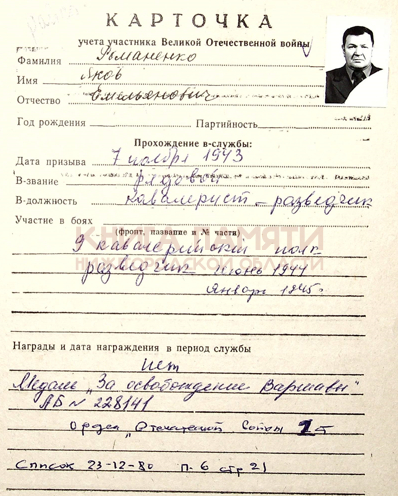 КАРТОЧКА
учета участника Великой Отечественной войны
Фамилия Романенко
Имя Яков
Отчество Емельянович
Год рождения Партийность
Прохождение в-службы:
Дата призыва 7 ноября 1943
В-звание рядовой
В-должность Кавалерист – разведчик
Участие в боях
(фронт, название и № части)
КНИГА ПАМЯТИ
НИЖЕГОРОДСКОЙ ОБЛАСТИ
9 кавалерийский полк
разведчик июнь 1944
Январь 1945г
Награды и дата награждения в период службы
Нет
Медаль „За освобождение Варшавы"
АБ № 228141
Орден „Отечественной
Список 23-12-80 п.6 стр 21